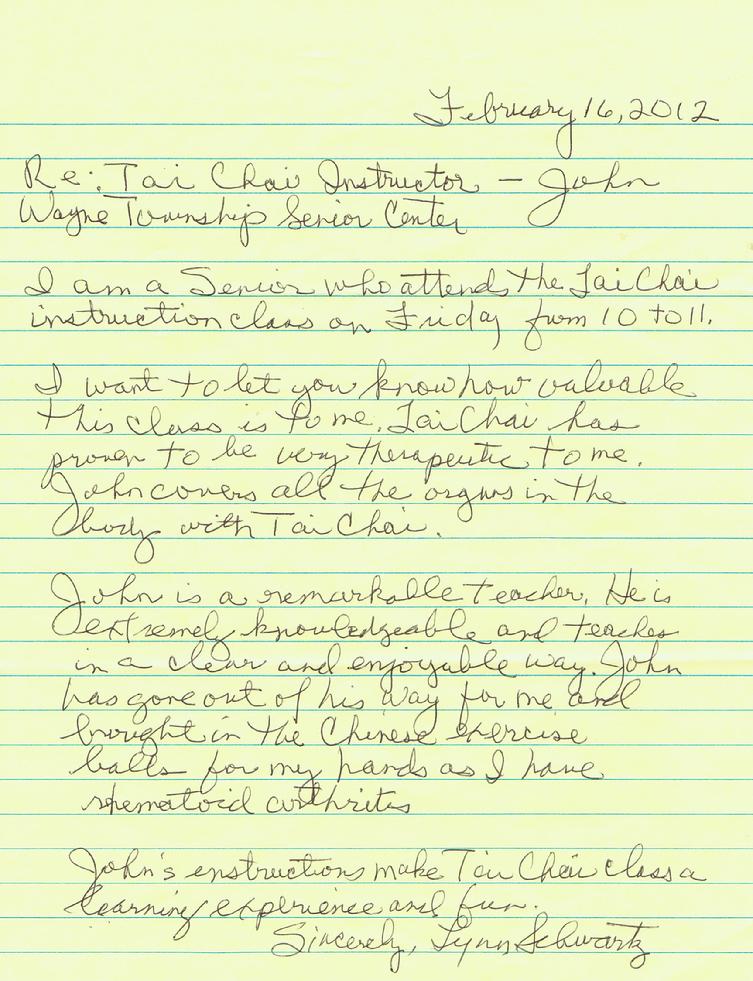 February 16, 2012
Re: Tai Chai Instructor – John
Wayne Township Senior Center
I am a Senior who attends the Tai Chai
instruction class on Friday from 10 to 11.
I want to let you know how valuable
this class is to me. Tai Chai has
proven to be very therapeutic to me.
John covers all the orgns in the
body with Tai Chai.
John is a remarkable teacher. He is
extremely knowledgeable and teaches
in a clear and enjoyable way. John
has gone out of his way for me and
brought in the Chinese exercise
balls for my hands as I have
rhematoid arthrites
John's enstructions make Tai Chai class a
learning experience and fun.
Sincerely, Lynn Schwartz